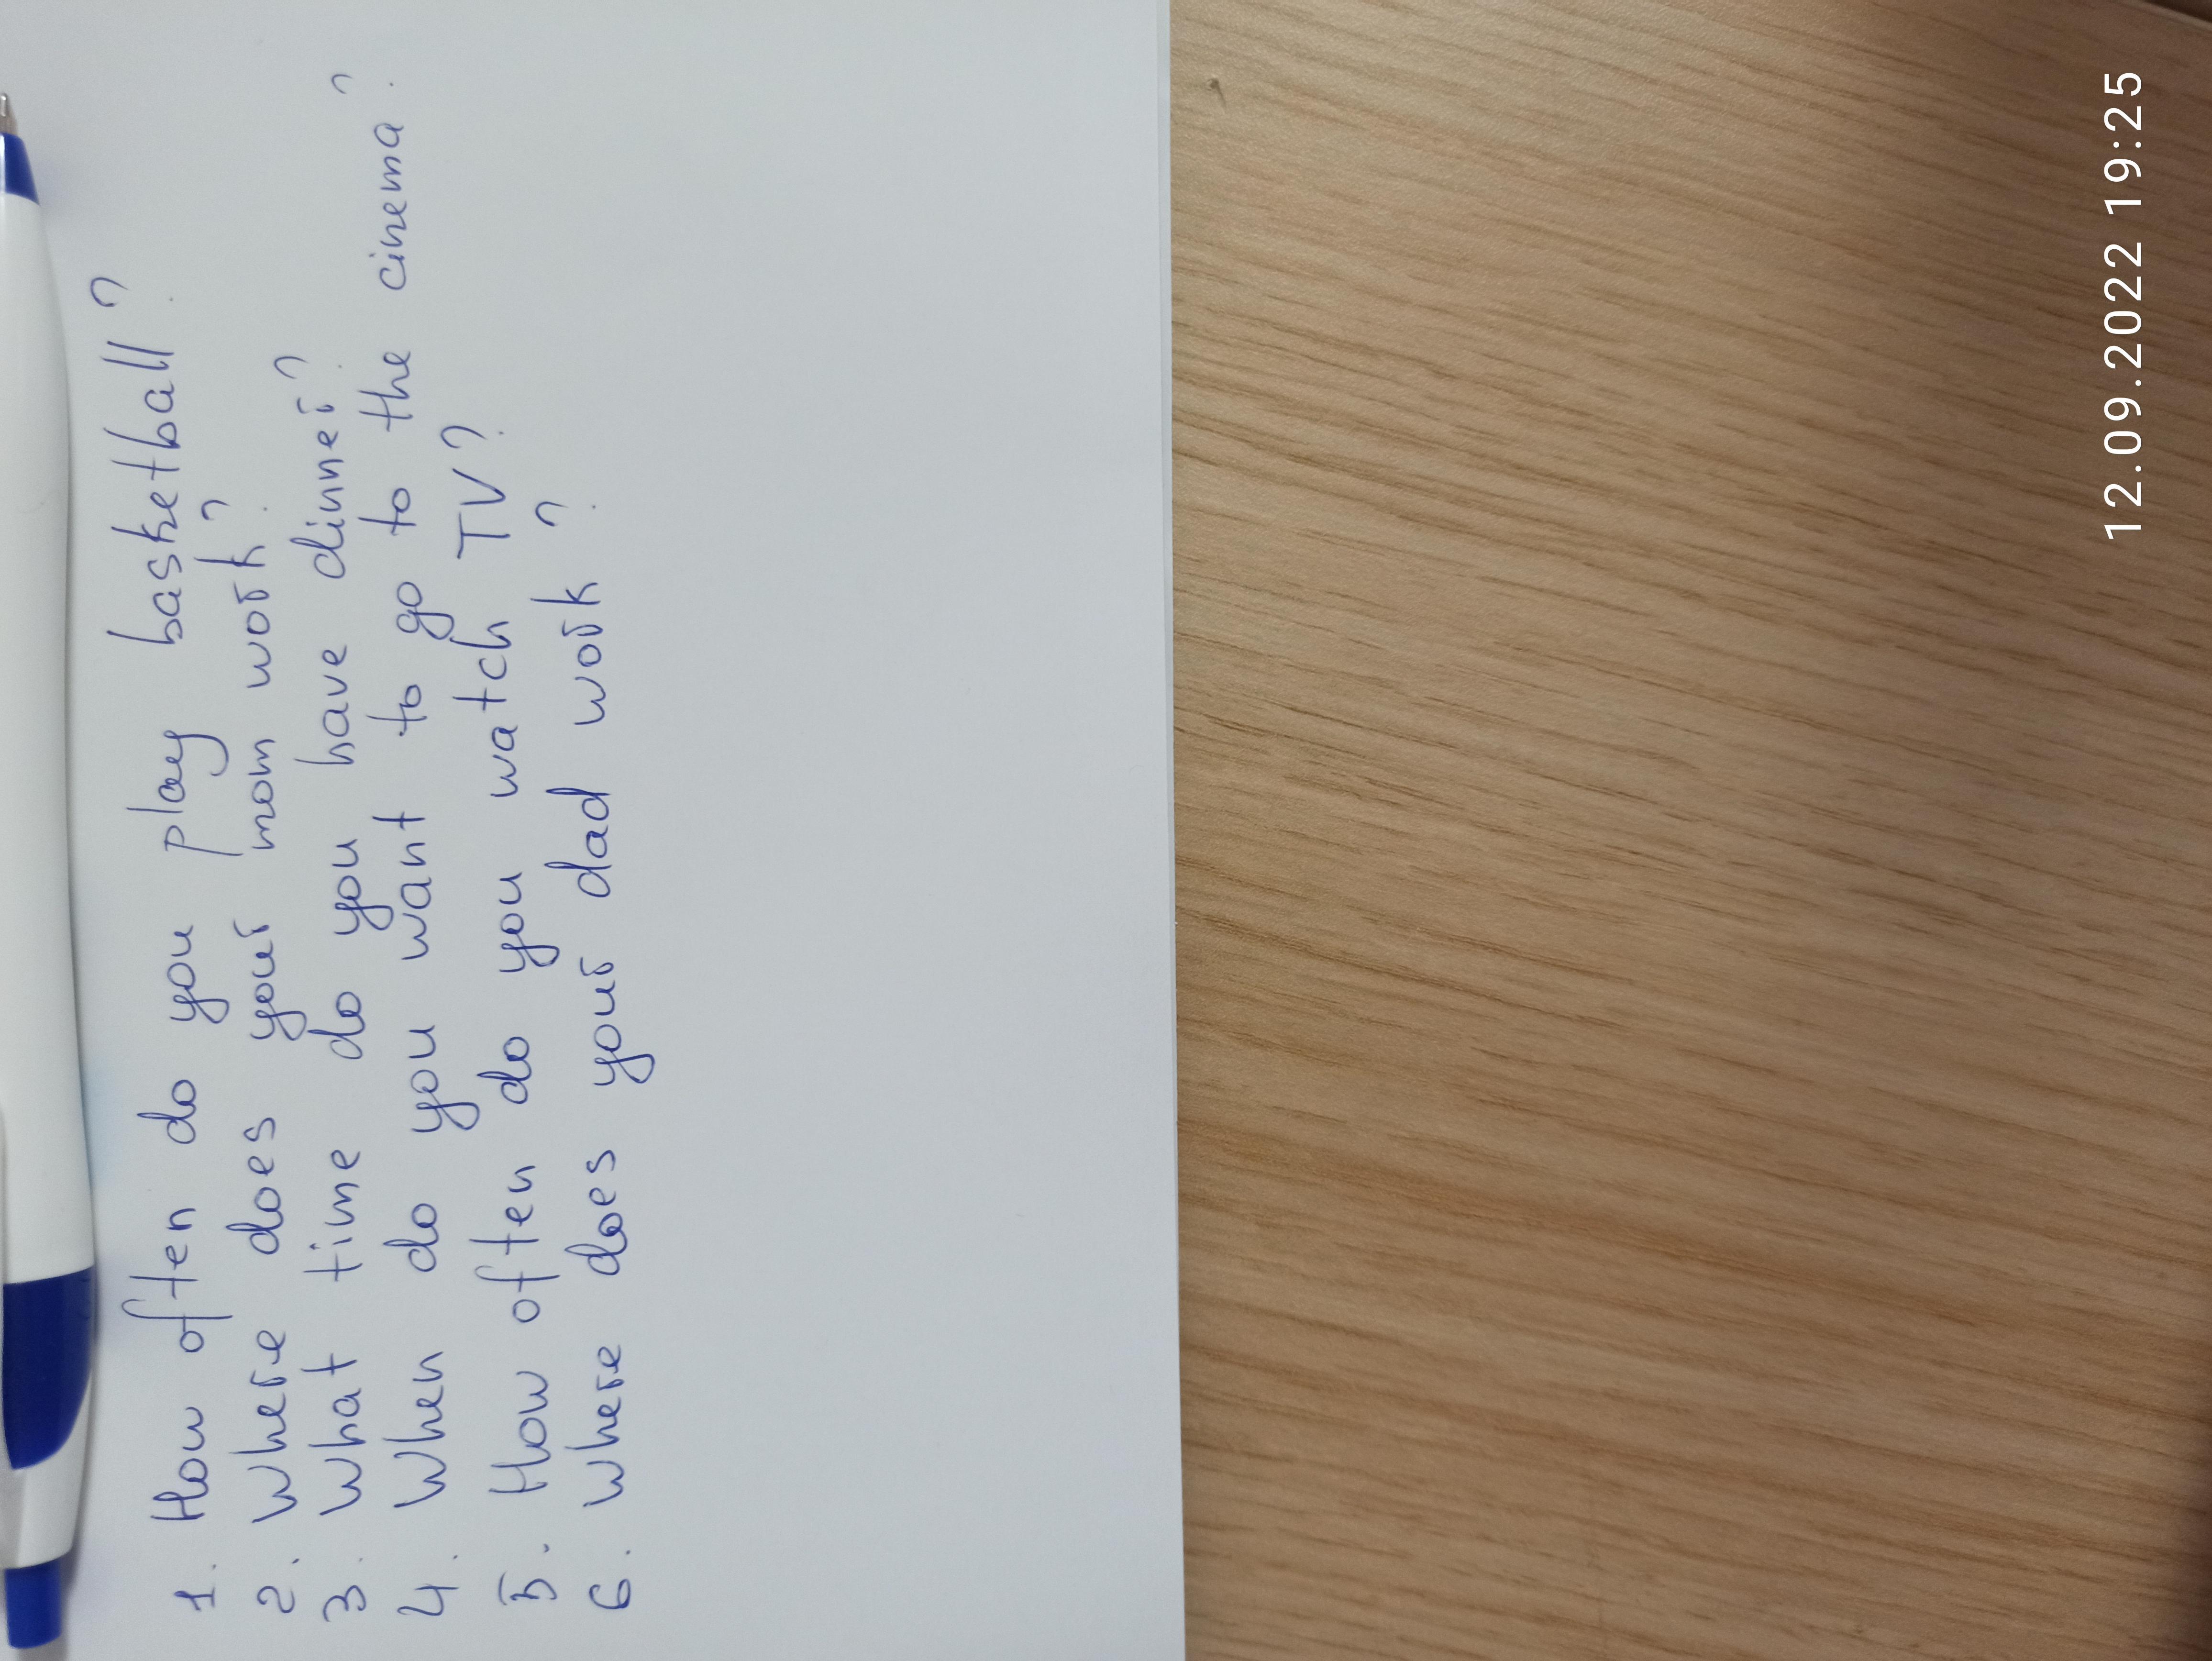 1. How often do you play basketball?
2. Where does your mom work?
3. What time do you have dinner?
4. When do you want to go to the cinema?
5. How often do you watch TV?
6. Where does your dad work?
12.09.2022 19:25